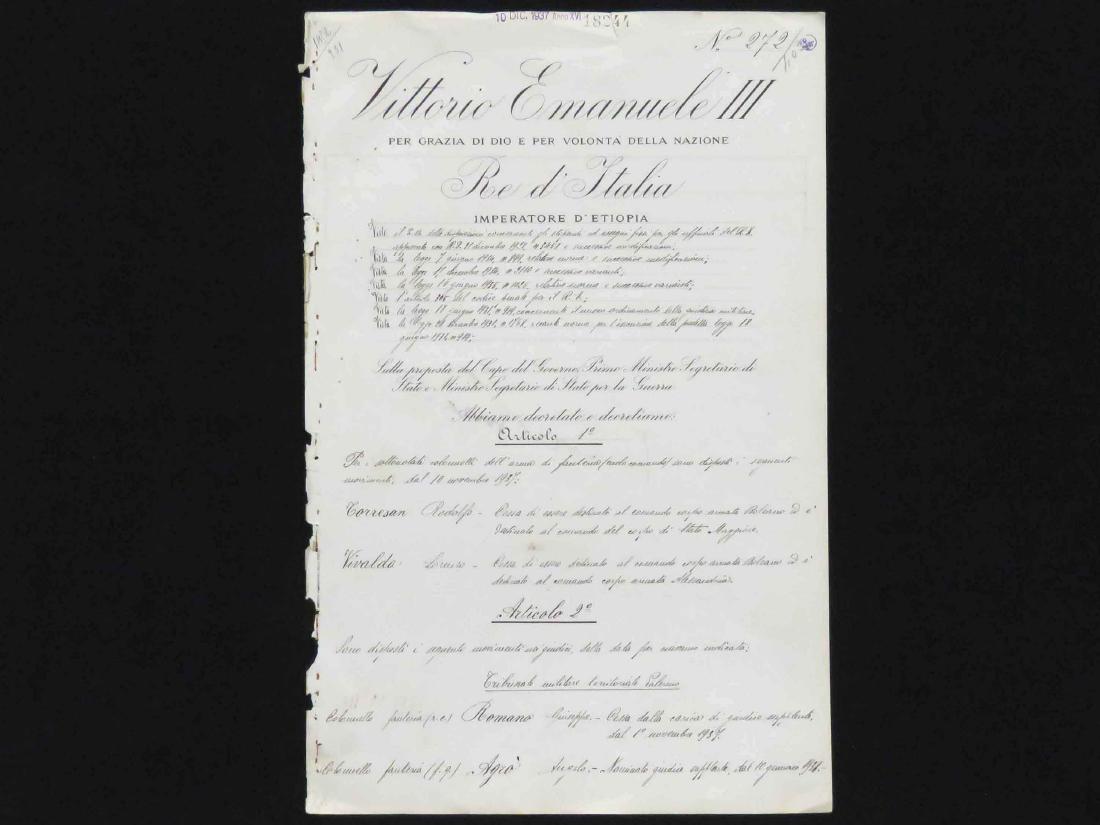 10 DIC. 1937 Anno XVI 18244
N.° 272
Vittorio Emanuele III
PER GRAZIA DI DIO E PER VOLONTÀ DELLA NAZIONE
Re d'Italia
IMPERATORE D'ETIOPIA
Visto il T.U. delle disposizioni concernenti gli stipendi ed assegni fissi per gli ufficiali del R.E.
approvato con R.D. 31 dicembre 1928, n. 3458 e successive modificazioni;
Vista la legge 7 giugno 1934, n. 899, relative norme e successive modificazioni;
Vista la legge e successive varianti;
Vista la legge relative norme e successive varianti;
Visto l'articolo del codice penale per il R.E.;
Vista la legge 18 giugno 1931, n. 919, concernente il nuovo ordinamento della giustizia militare;
Vista la legge 28 recante norme per l'esecuzione della predetta legge 18
giugno 1931, n. 919;
Sulla proposta del Capo del Governo, Primo Ministro Segretario di
Stato e Ministro Segretario di Stato per la Guerra
Abbiamo decretato e decretiamo:
Articolo 1°
Per i sottonotati colonnelli dell'arma di fanteria (ruolo comando) sono disposti i seguenti
movimenti, dal 10 novembre 1937:
Torresan Rodolfo - Cessa di essere destinato al comando corpo armata Palermo ed è
destinato al comando del corpo di Stato Maggiore.
Vivalda Lorenzo - Cessa di essere destinato al comando corpo armata Bolzano ed è
destinato al comando corpo armata Alessandria.
Articolo 2°
Sono disposti i seguenti movimenti nei giudici, dalla data per ciascuno indicata:
Tribunale militare territoriale Palermo
Colonnello fanteria (r.c.) Romano Giuseppe - Cessa dalla carica di giudice supplente,
dal 1° novembre 1937.
Colonnello fanteria (f.q.) Agrò Angelo - Nominato giudice supplente, dal 1° gennaio 1938.-